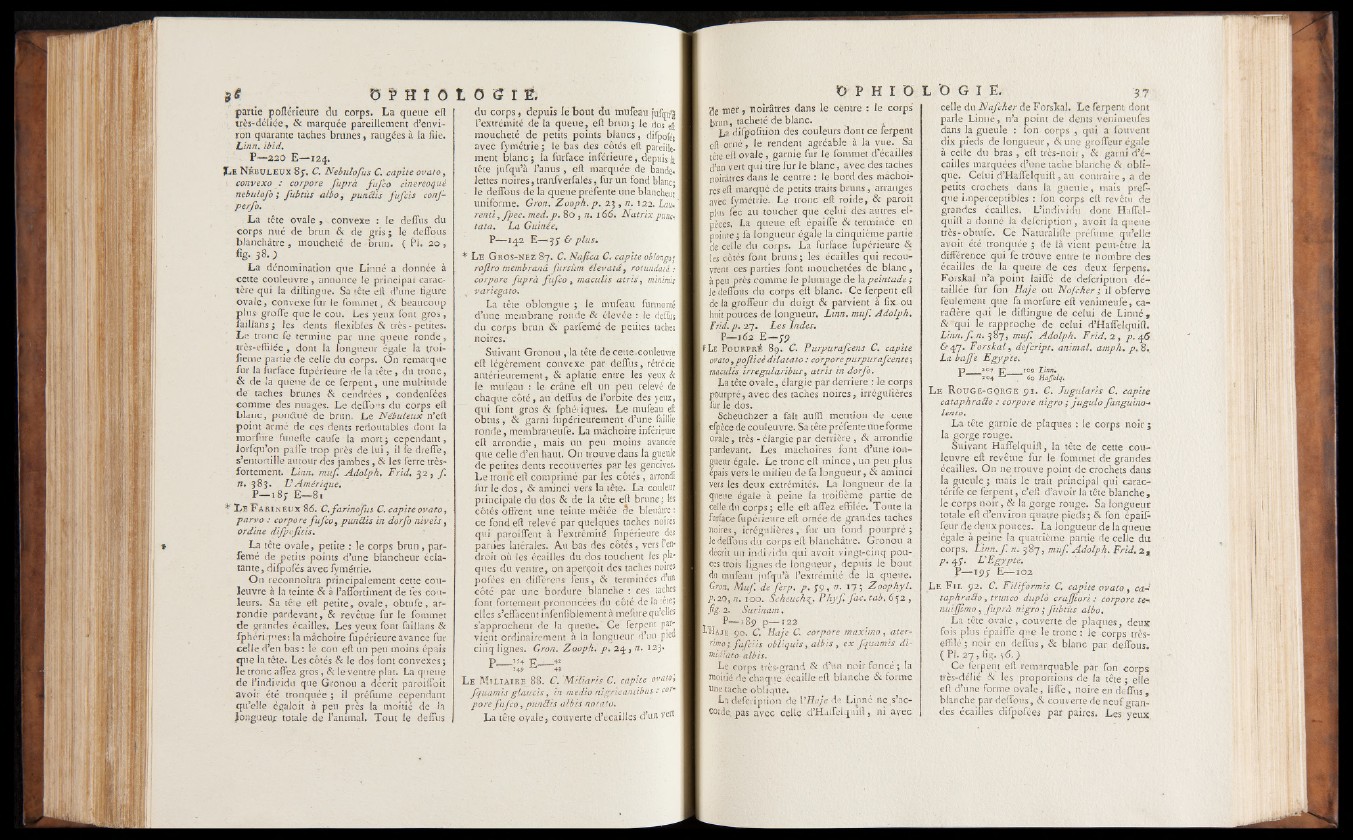 36 OPHIOLOGIE.
partie postérieure du corps. La queue est
très-déliée, & marquée pareillement d'envi-
ron quarante taches brunes, rangées à la file.
Linn. ibid.
P—220 E—124.
LE NÉBULEUX 85. C. Nebulosus C. capite ovato,
convexo : corpore suprà fusco cinereoque
nebuloso ; subtùs albo, punctis fuscis cons-
perso.
La tête ovale, convexe : le dessus du
corps nué de brun & de gris ; le dessous
blanchâtre, moucheté de brun. ( Pl. 20,
fig. 38. )
La dénomination que Linné a donnée à
cette couleuvre, annonce le principal carac-
tère qui la distingue. Sa tête est d'une figure
ovale, convexe sur le sommet, & beaucoup
plus grosse que le cou. Les yeux sont gros,
saillans ; les dents flexibles & très-petites.
Le tronc se termine par une queue ronde,
très-effilée, dont la longueur égale la troi-
sieme partie de celle du corps. On remarque
sur la surface supérieure de la tête, du tronc,
& de la queue de ce serpent, une multitude
de taches brunes & cendrées, condensées
comme des nuages. Le dessous du corps est
blanc, ponctué de brun. Le Nébuleux n'est
point armé de ces dents redoutables dont la
morsure funeste cause la mort ; cependant,
lorsqu'on passe trop près de lui, il se dresse,
s'entortille autour des jambes, & les serre très-
fortement. Linn. mus. Adolph. Frid. 32, s.
n. 383. L'Amérique.
P—185 E—81
* LE FARINEUX 86. C. farinosus C. capite ovato,
parvo : corpore fusco, punctis in dorso niveis,
ordine dispositis.
La tête ovale, petite : le corps brun, par-
semé de petits points d'une blancheur écla-
tante, disposés avec symétrie.
On reconnoîtra principalement cette cou-
leuvre à la teinte & à l'assortiment de ses cou-
leurs. Sa tête est petite, ovale, obtuse, ar-
rondie pardevant, & revêtue sur le sommet
de grandes écailles. Les yeux sont saillans &
sphériques : la mâchoire supérieure avance sur
celle d'en bas : le cou est un peu moins épais
que la tête. Les côtés & le dos sont convexes ;
le tronc assez gros, & le ventre plat. La queue
de l'individu que Gronou a décrit paroissoit
avoir été tronquée ; il présume cependant
qu'elle égaloit à peu près la moitié de la
longueur totale de l'animal. Tout le dessus
du corps, depuis le bout du museau jusqu'à
l'extrémité de la queue, est brun ; le dos est
moucheté de petits points blancs, disposés
avec symétrie ; le bas des côtés est pareille-
ment blanc ; la surface inférieure, depuis la
tête jusqu'à l'anus, est marquée de bande-
lettes noires, transversales, sur un fond blanc ;
le dessous de la queue présente une blancheur
uniforme. Gron. Zooph. p. 23, n. 122. Lau-
renti, spec. med. p. 80, n. 166. Natrix punc-
tata. La Guinée.
P—142 E—35 & plus.
* LE GROS-NEZ 87. C. Nasica C. capite oblongo ;
rostro membranâ sursùm elevatâ, rotundatâ :
corpore suprà fusco, maculis atris, minimis
variegato.
La tête oblongue ; le museau surmonté
d'une membrane ronde & élevée : le dessus
du corps brun & parsemé de petites taches
noires.
Suivant Gronou, la tête de cette couleuvre
est légèrement convexe par dessus, rétrécie
antérieurement, & aplatie entre les yeux &
le museau : le crâne est un peu relevé de
chaque côté, au dessus de l'orbite des yeux,
qui sont gros & sphériques. Le museau est
obtus, & garni supérieurement d'une saillie
ronde, membraneuse. La mâchoire inférieure
est arrondie, mais un peu moins avancée
que celle d'en haut. On trouve dans la gueule
de petites dents recouvertes par les gencives.
Le tronc est comprimé par les côtés, arrondi
sur le dos, & aminci vers la tête. La couleur
principale du dos & de la tête est brune ; les
côtés offrent une teinte mêlée de bleuâtre :
ce fond est relevé par quelques taches noires
qui paroissent à l'extrémité supérieure des
parties latérales. Au bas des côtés, vers l'en-
droit où les écailles du dos touchent les pla-
ques du ventre, on aperçoit des taches noires
posées en différens sens, & terminées d'un
côté par une bordure blanche : ces taches
sont fortement prononcées du côté de la tête ;
elles s'effacent insensiblement à mesure qu'elles
s'approchent de la queue. Ce serpent par-
vient ordinairement à la longueur d'un pied
cinq lignes. Gron. Zooph. p. 24, n. 123.
P—154/149 E—42/43
LE MILIAIRE 88. C. Miliaris C. capite ovato ;
squamis glaucis, in medio nigricantibus : cor-
pore fusco, punctis albis notato.
La tête ovale, couverte d'écailles d'un vert
OPHIOLOGIE. 37
de mer, noirâtres dans le centre : le corps
brun, tacheté de blanc.
La disposition des couleurs dont ce serpent
est orné, le rendent agréable à la vue. Sa
tête est ovale, garnie sur le sommet d'écailles
d'un vert qui tire sur le blanc, avec des taches
noirâtres dans le centre : le bord des mâchoi-
res est marqué de petits traits bruns, arrangés
avec symétrie. Le tronc est roide, & paroît
plus sec au toucher que celui des autres es-
pèces. La queue est épaisse & terminée en
pointe ; sa longueur égale la cinquième partie
de celle du corps. La surface supérieure &
les côtés sont bruns ; les écailles qui recou-
vrent ces parties sont mouchetées de blanc,
à peu près comme le plumage de la peintade ;
le dessous du corps est blanc. Ce serpent est
de la grosseur du doigt & parvient à six ou
huit pouces de longueur. Linn. mus. Adolph.
Frid. p. 27. Les Indes.
P—162 E—59
* LE POURPRÉ 89. C. Purpurascens C. capite
ovato, posticè dilatato : corpore purpurascente ;
maculis irregularibus, atris in dorso.
La tête ovale, élargie par derriere : le corps
pourpré, avec des taches noires, irrégulières
sur le dos.
Scheuchzer a fait aussi mention de cette
espèce de couleuvre. Sa tête présente une forme
ovale, très-élargie par derrière, & arrondie
pardevant. Les mâchoires sont d'une lon-
gueur égale. Le tronc est mince, un peu plus
épais vers le milieu de sa longueur, & aminci
vers les deux extrémités. La longueur de la
queue égale à peine la troisième partie de
celle du corps ; elle est assez effilée. Toute la
surface supérieure est ornée de grandes taches
noires, irrégulières, sur un fond pourpré ;
le dessous du corps est blanchâtre. Gronou a
décrit un individu qui avoit vingt-cinq pou-
ces trois lignes de longueur, depuis le bout
du museau jusqu'à l'extrémité de la queue.
Gron. Mus. de serp. p. 59, n. 17 ; Zoophyl.
p. 20, n. 100. Scheuchz. Phys. sac. tab. 652,
fig. 2. Surinam.
P—189 p—122
L'HAJE 90. C. Haje C. corpore maximo, ater-
rimo ; fasciis obliquis, albis, ex squamis di-
midiato albis.
Le corps très-grand & d'un noir foncé ; la
moitié de chaque écaille est blanche & forme
une tache oblique.
La description de l'Haje de Linné ne s'ac-
corde pas avec celle d'Hasselquist, ni avec
celle du Nascher de Forskal. Le serpent dont
parle Linné, n'a point de dents venimeuses
dans la gueule : son corps, qui a souvent
dix pieds de longueur, & une grosseur égale
à celle du bras, est très-noir, & garni d'é-
cailles marquées d'une tache blanche & obli-
que. Celui d'Hasselquist, au contraire, a de
petits crochets dans la gueule, mais pres-
que imperceptibles : son corps est revêtu de
grandes écailles. L'individu dont Hassel-
quist a donné la description, avoit la queue
très-obtuse. Ce Naturaliste présume qu'elle
avoit été tronquée ; de là vient peut-être la
différence qui se trouve entre le nombre des
écailles de la queue de ces deux serpens.
Forskal n'a point laissé de description dé-
taillée sur son Haje ou Nascher ; il observe
seulement que sa morsure est venimeuse, ca-
ractère qui le distingue de celui de Linné,
& qui le rapproche de celui d'Hasselquist.
Linn. s. n. 387, mus. Adolph. Frid. 2, p. 46
& 47. Forskal, descript. animal. amph. p. 8.
La basse Egypte.
P—207/204 E—109 Linn./60 Hasselq.
LE ROUGE-GORGE 91. C. Jugularis C. capite
cataphracto : corpore nigro ; jugulo sanguino-
lento.
La tête garnie de plaques : le corps noir ;
la gorge rouge.
Suivant Hasselquist, la tête de cette cou-
leuvre est revêtue sur le sommet de grandes
écailles. On ne trouve point de crochets dans
la gueule ; mais le trait principal qui carac-
térise ce serpent, c'est d'avoir la tête blanche,
le corps noir, & la gorge rouge. Sa longueur
totale est d'environ quatre pieds ; & son épais-
seur de deux pouces. La longueur de la queue
égale à peine la quatrième partie de celle du
corps. Linn. s. n. 387, mus. Adolph. Frid. 2,
p. 45. L'Egypte.
P—195 E—102
LE FIL 92. C. Filiformis C. capite ovato, ca-
taphracto, trunco duplò crassiori : corpore te-
nuissimo, suprà nigro ; subtùs albo.
La tête ovale, couverte de plaques, deux
fois plus épaisse que le tronc : le corps très-
effilé ; noir en dessus, & blanc par dessous.
( Pl. 27, fig. 56. )
Ce serpent est remarquable par son corps
très-délié & les proportions de la tête ; elle
est d'une forme ovale, lisse, noire en dessus,
blanche par dessous, & couverte de neuf gran-
des écailles disposées par paires. Les yeux